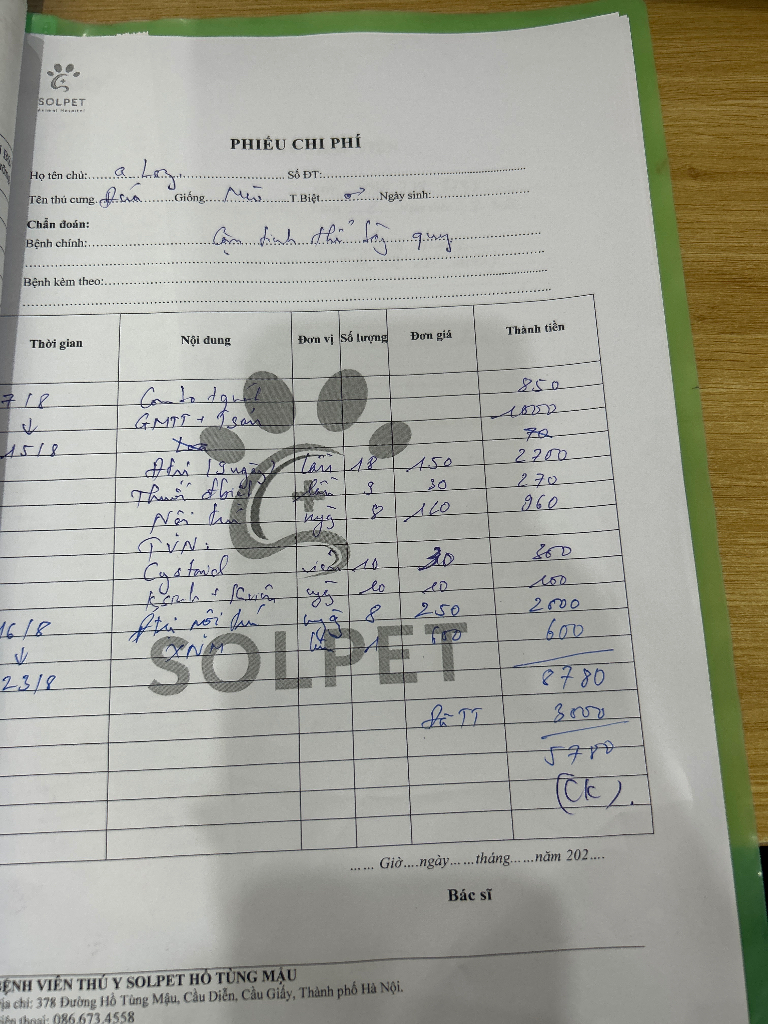 SOLPET
Animal Hospital
PHIẾU CHI PHÍ
Họ tên chủ: a Long Số ĐT:
Tên thú cưng Giống Mèo T.Biệt ♂ Ngày sinh:
Chẩn đoán:
Bệnh chính:
Bệnh kèm theo:
Thời gian Nội dung Đơn vị Số lượng Đơn giá Thành tiền
7/8 Combo 850
↓ GMTT + 1000
15/8 70
Đtrị (9 ngày) lần 18 150 2700
Thuốc 9 30 270
Nội trú ngày 8 120 960
TVN:
Cystaid viên 10 30 300
ngày 10 10 100
16/8 Đtrị nội trú ngày 8 250 2000
↓ XNM lần 1 600 600
23/8 8780
Đã TT 3000
5780
(CK).
Giờ....ngày......tháng......năm 202....
Bác sĩ
SOLPET
BỆNH VIỆN THÚ Y SOLPET HỒ TÙNG MẬU
Địa chỉ: 378 Đường Hồ Tùng Mậu, Cầu Diễn, Cầu Giấy, Thành phố Hà Nội.
Điện thoại: 086.673.4558